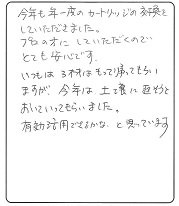 今年も年一度のカートリッジの交換を
していただきました。
プロの方にしていただくので
とても安心です。
いつもは 3本はもって帰ってもらい
ますが 今年は 土で囲に直そうと
おいていってもらいました。
有効活用できるかな と思っています